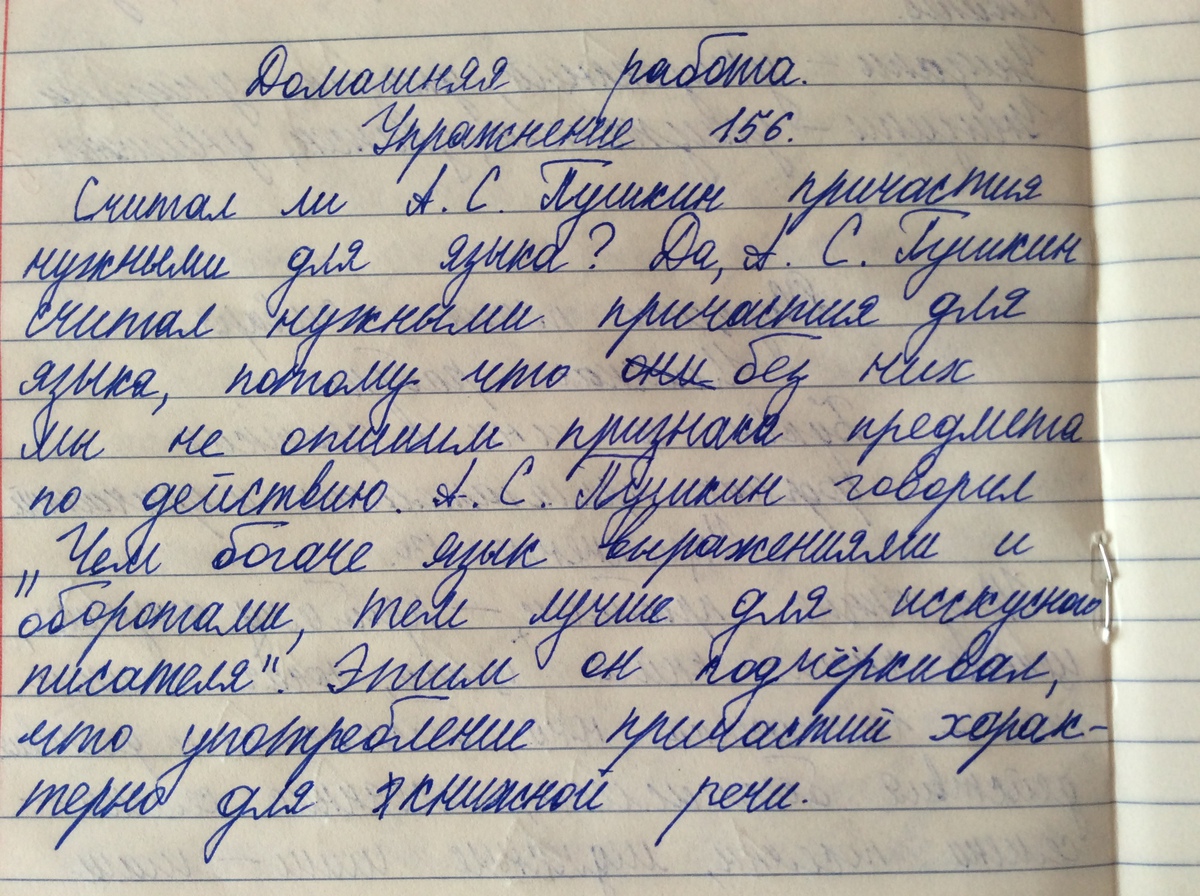 Домашняя работа.
Упражнение 156.
Считал ли А. С. Пушкин причастия
нужными для языка? Да, А. С. Пушкин
считал нужными причастия для
языка, потому что они без них
мы не опишим признака предмета
по действию. А. С. Пушкин говорил
„Чем богаче язык выражениями и
оборотами, тем лучше для исскусного
писателя". Этим он подчёркивал,
что употребление причастий харак-
терно для книжной речи.